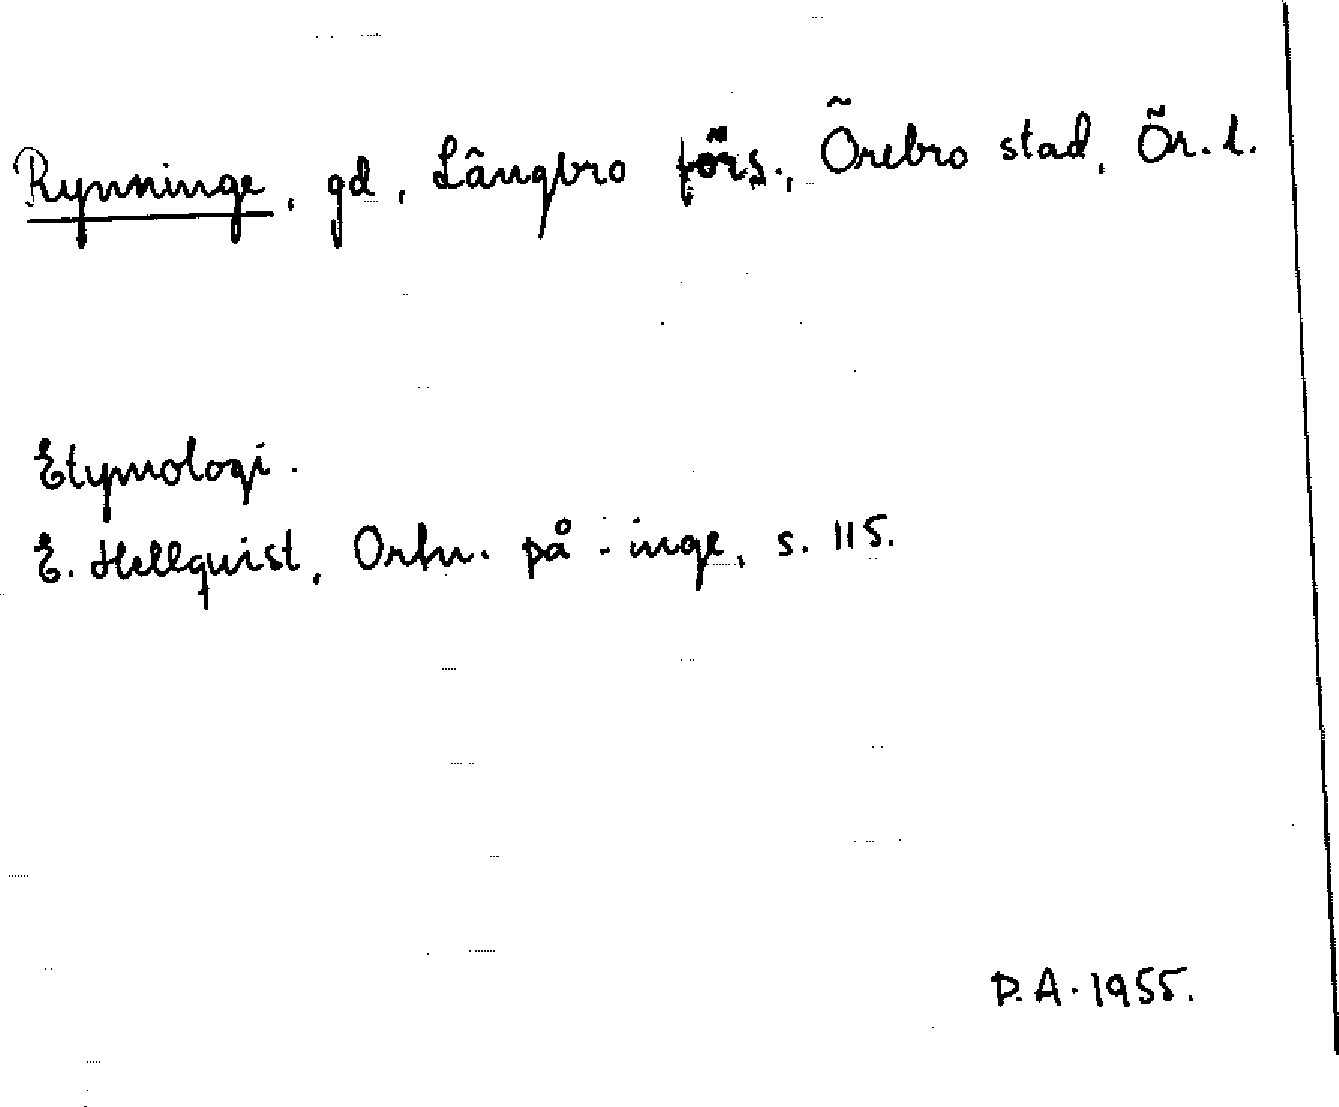 Rynninge, gd, Långbro förs., Örebro stad, Ör. l.
Etymologi.
E. Hellquist, Ortn. på -inge, s. 115.
D.A. 1955.